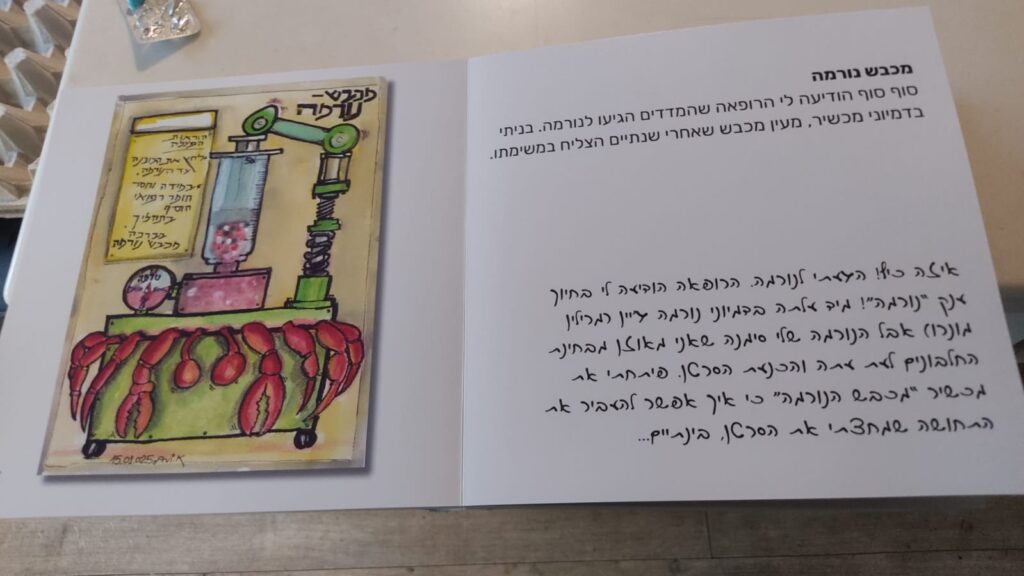 מכבש נורמה
סוף סוף הודיעה לי הרופאה שהמדדים הגיעו לנורמה. בניתי
בדמיוני מכשיר, מעין מכבש שאחרי שנתיים הצליח במשימתו.
איזה כיף! הגעתי לנורמה. הרופאה הודיעה לי בחיוך
ענק "נורמה"! מיד עלתה בדמיוני נורמה ג'יין (מרילין
מונרו) אבל הנורמה שלי סימנה שאני מאוזן מבחינת
החלבונים לעת עתה והכנעת הסרטן. פיתחתי את
מכשיר "מכבש הנורמה" כי איך אפשר להעביר את
התחושה שמחצתי את הסרטן, בינתיים...
מכבש-
נורמה
הוראות
הפעלה
עד הנורמה.
במידה וחסר
חומר רפואי
הוסף
בתהליך.
בברכה
מכבש נורמה
נורמה
15.01.025